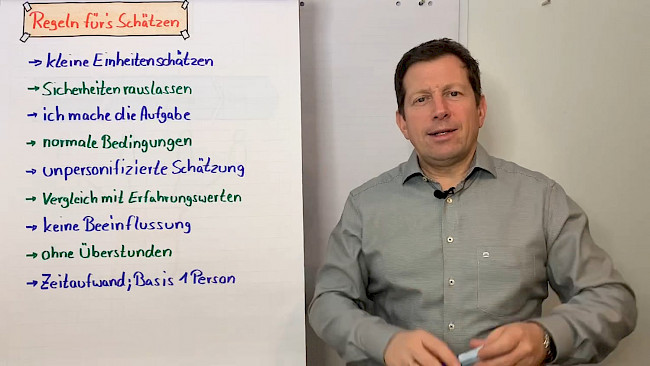 Regeln für's Schätzen
→ kleine Einheiten schätzen
→ Sicherheiten rauslassen
→ ich mache die Aufgabe
→ normale Bedingungen
→ unpersonifizierte Schätzung
→ Vergleich mit Erfahrungswerten
→ keine Beeinflussung
→ ohne Überstunden
→ Zeitaufwand; Basis 1 Person